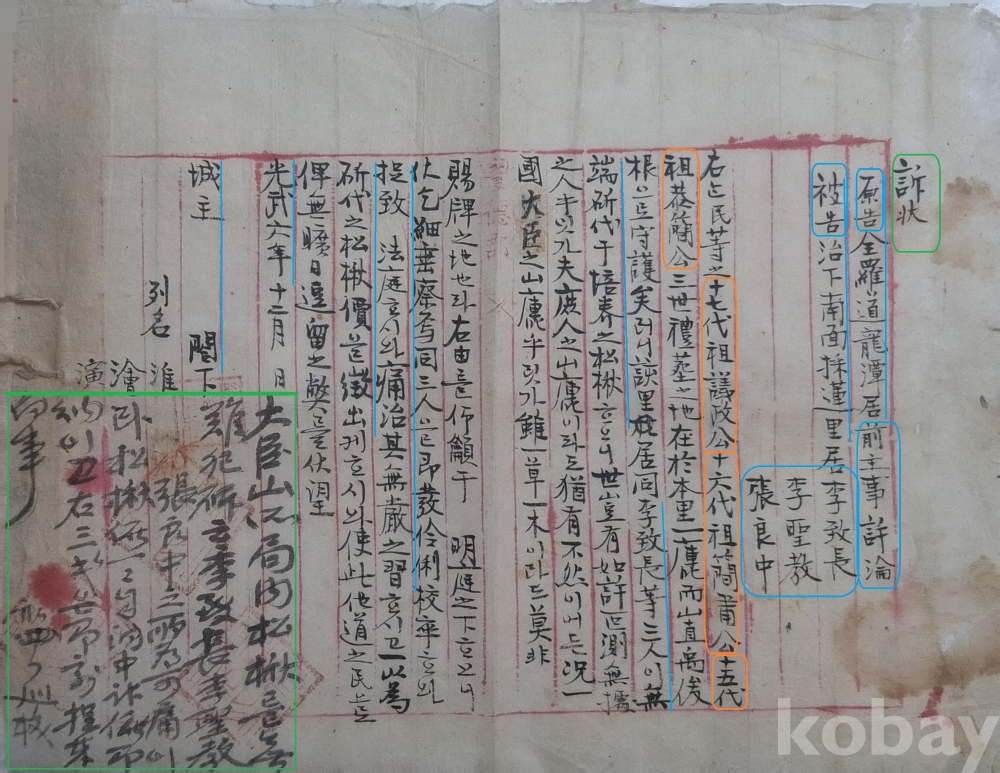 訴狀
原告 全羅道龍潭居 前主事 許淪
被告 治下南面採蓮里居 李致長
李聖敎
張良中
右은民等之十七代祖議政公十六代祖簡肅公十五代
祖恭簡公三世禮葬之地在於本里一麓而山直禹俊
根으로守護矣러니該里居同李致長等三人이無
端斫伐于培養之松楸하오니世豈有如許叵測無據
之人乎잇가夫庶人之山麓이라도猶有不然이어든況一
國大臣之山麓乎잇가雖一草一木이라도莫非
賜牌之地也라右由를仰籲于 明庭之下하오니
伏乞 細垂察焉同三人을即發伶俐校卒하와
捉致 法庭하시와痛治其無嚴之習하시고一以爲
斫伐之松楸價를徵出케하시와使此他道之民으로
俾無曠日逗留之弊를伏望
光武六年十二月 日
城主 閤下
列名 淮
澮
演
大臣山局內松楸
李致長李聖敎
張良中
松楸
右三
kobay